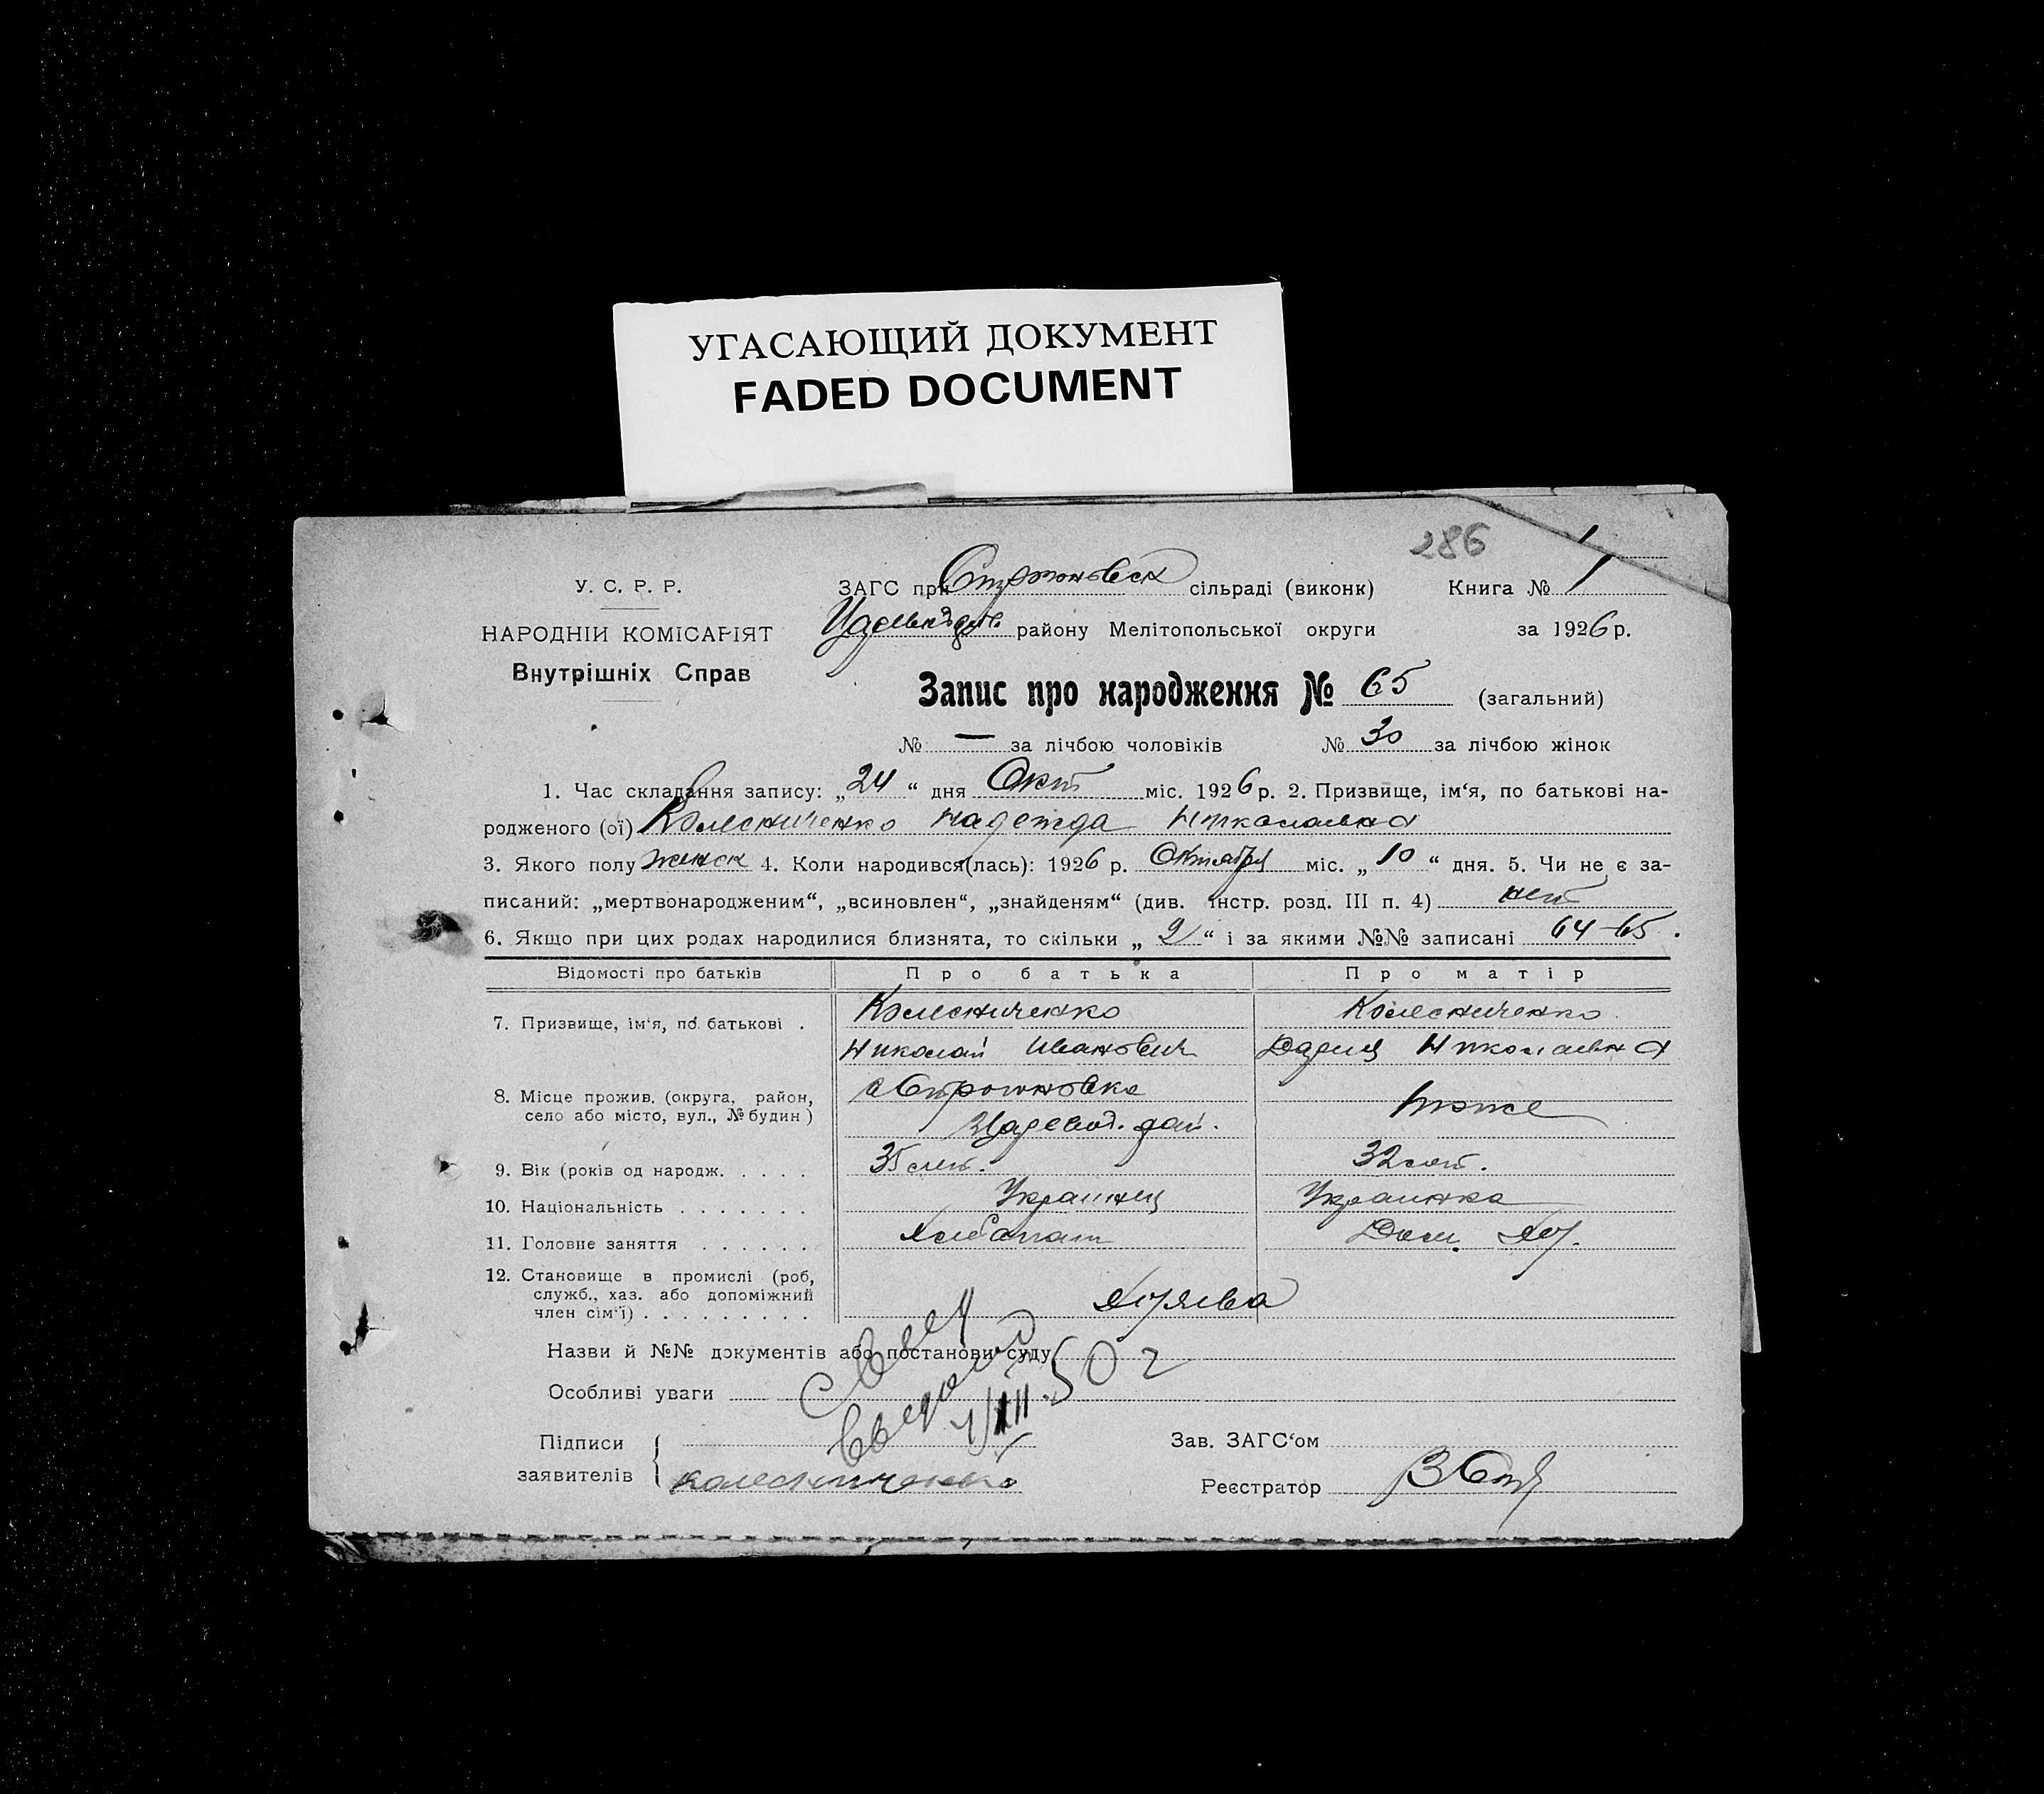 УГАСАЮЩИЙ ДОКУМЕНТ
FADED DOCUMENT
286
У. С. Р. Р.
НАРОДНІЙ КОМІСАРІЯТ
Внутрішніх Справ
ЗАГС при Строгановск сільраді (виконк) Книга № 1
району Мелітопольської округи за 1926 р.
Запис про народження № 65 (загальний)
№ — за лічбою чоловіків № 30 за лічбою жінок
1. Час складання запису: „24“ дня Окт міс. 1926 р. 2. Призвище, ім‘я, по батькові на-
родженого (ої) Колесниченко Надежда Николаевна
3. Якого полу женск 4. Коли народився(лась): 1926 р. Октября міс. „10“ дня. 5. Чи не є за-
писаний: „мертвонародженим“, „всиновлен“, „знайденям“ (див. інстр. розд. III п. 4) нет
6. Якщо при цих родах народилися близнята, то скільки „2“ і за якими №№ записані 64-65.
Відомості про батьків Про батька Про матір
7. Призвище, ім‘я, по батькові . Колесниченко Колесниченко
Николай Иванович Дария Николаевна
8. Місце прожив. (округа, район, село або місто, вул., № будин) с Строгановка тоже
Царевод. рай.
9. Вік (років од народж. . . . . 35 лет. 32 лет.
10. Національність . . . . . . . Украинец Украинка
11. Головне заняття . . . . . . Хлебопаш Дом. хоз.
12. Становище в промислі (роб,
служб., хаз. або допоміжний
член сім‘ї) . . . . . . . . . хозяева
Назви й №№ документів або постанови суду
Особливі уваги
выдано
50 г
Підписи
заявителів Колесниченко
Зав. ЗАГС‘ом
Реєстратор